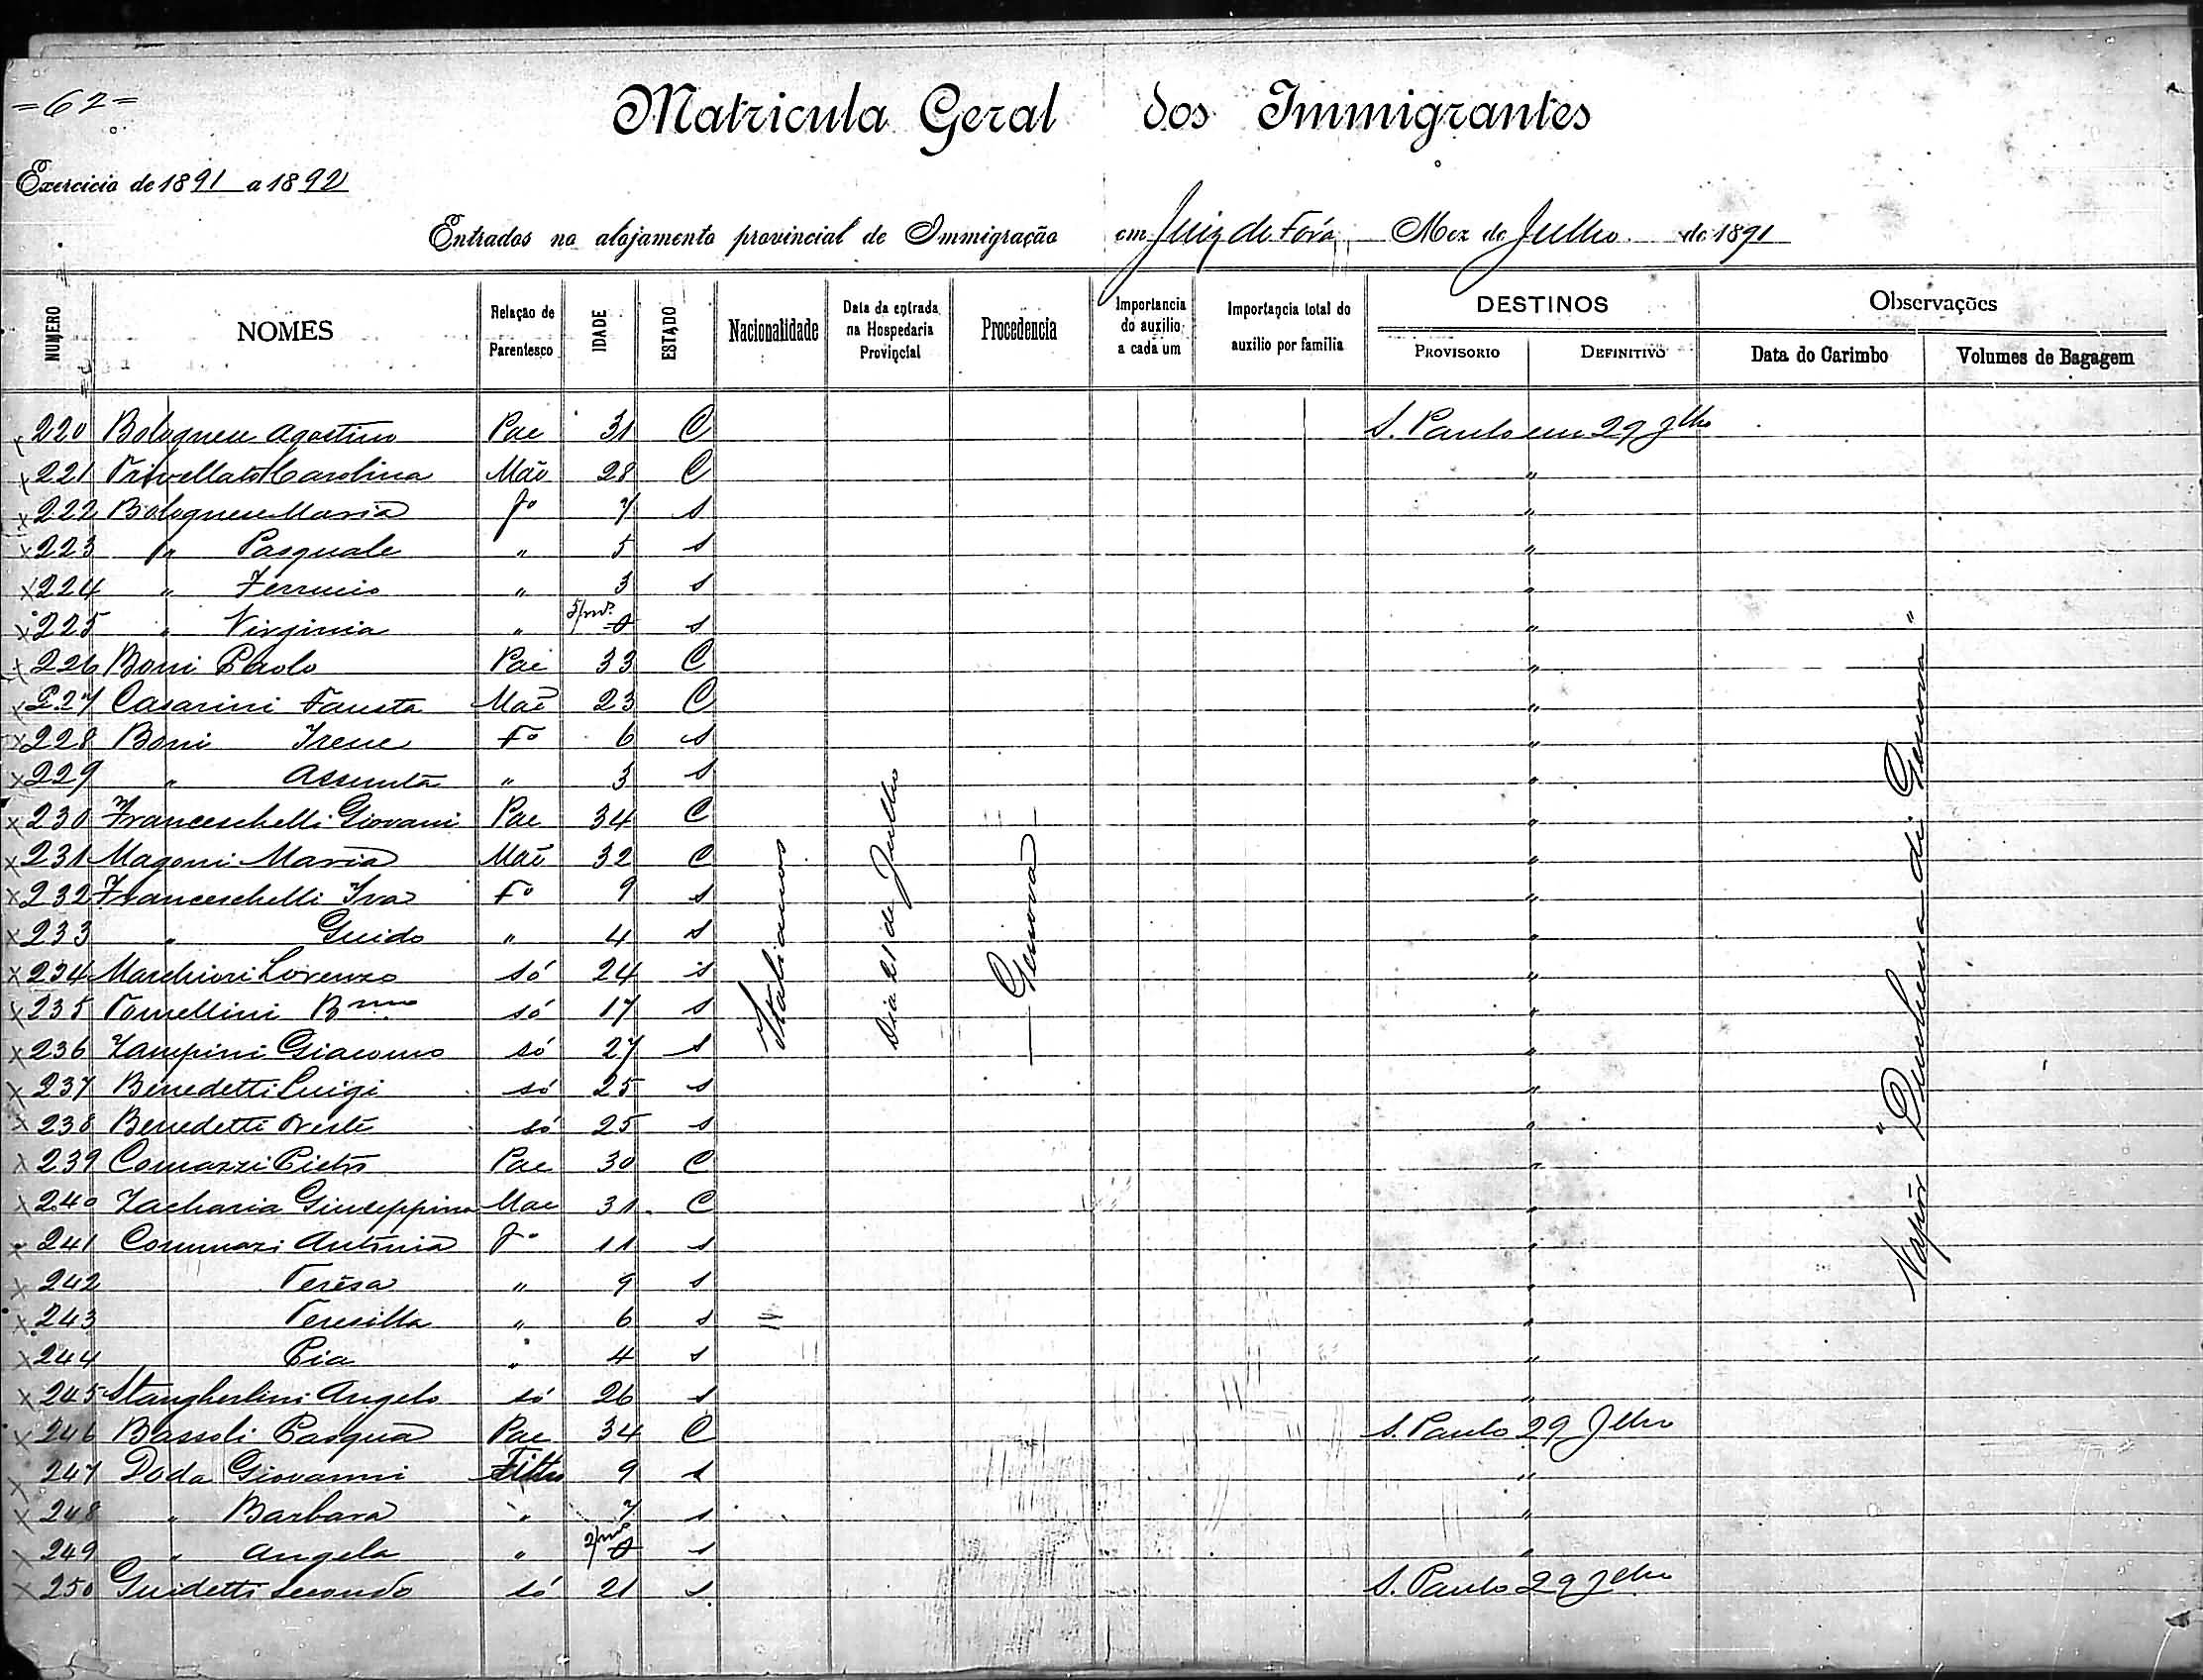 =62=
Matricula Geral dos Immigrantes
Exercicio de 1891 a 1892
Entrados no alojamento provincial de Immigração em Juiz de Fóra Mez de Julho de 1891
NUMERO NOMES Relação de Parentesco IDADE ESTADO Nacionalidade Data da entrada na Hospedaria Provincial Procedencia Importancia do auxilio a cada um Importancia total do auxilio por familia DESTINOS PROVISORIO DEFINITIVO Observações Data do Carimbo Volumes de Bagagem
x 220 Bolognese Agostino Pae 31 C S. Paulo em 29 Jlho
x 221 Trivellato Carolina Mãe 28 C "
x 222 Bolognese Maria fo 7 s "
x 223 " Pasquale " 5 s "
x 224 " Ferrucio " 3 s "
x 225 " Virginia " 5/ms 0 s "
x 226 Boni Paolo Pai 33 C "
x 227 Casarini Fausta Mãe 23 C "
x 228 Boni Irene Fo 6 s "
x 229 " Assunta " 3 s "
x 230 Franceschelli Giovani Pae 34 C "
x 231 Magoni Maria Mãe 32 C "
x 232 Franceschelli Iva Fo 9 s "
x 233 " Guido " 4 s "
x 234 Marchiori Lorenzo só 24 s "
x 235 Tomellini Bmo só 17 s "
x 236 Zampini Giacomo só 27 s "
x 237 Benedetti Luigi só 25 s "
x 238 Benedetti Oreste só 25 s "
x 239 Comazzi Pietro Pae 30 C "
x 240 Zacharia Giuseppina Mae 31 C "
x 241 Commazi Antonia fo 11 s "
x 242 Teresa " 9 s "
x 243 Teresilla " 6 s "
x 244 Pia " 4 s "
x 245 Stangherlini Angelo só 26 s "
x 246 Bassoli Pasqua Pae 34 C S. Paulo 29 Jlho
x 247 Doda Giovanni Filho 9 s "
x 248 " Barbara " 7 s "
x 249 " Angela " 2/ms 0 s "
x 250 Guidetti Secondo só 21 s S. Paulo 29 Jlho
Italianos
Dia 21 de Julho
— Genova —
Vapôr "Duchessa di Genova"